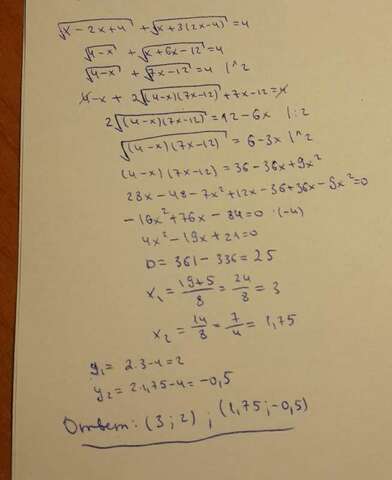 √x - 2x+4 + √x+3(2x-4) = 4
√4-x + √x+6x-12 = 4
√4-x + √7x-12 = 4 |^2
4-x + 2√(4-x)(7x-12) + 7x-12 = 4
2√(4-x)(7x-12) = 12-6x |:2
√(4-x)(7x-12) = 6-3x |^2
(4-x)(7x-12) = 36-36x+9x²
28x-48-7x²+12x-36+36x-9x²=0
-16x²+76x-84=0 :(-4)
4x²-19x+21=0
D = 361-336 = 25
x₁ = (19+5)/8 = 24/8 = 3
x₂ = 14/8 = 7/4 = 1,75
y₁ = 2·3-4=2
y₂ = 2·1,75-4=-0,5
Ответ: (3;2) ; (1,75;-0,5)